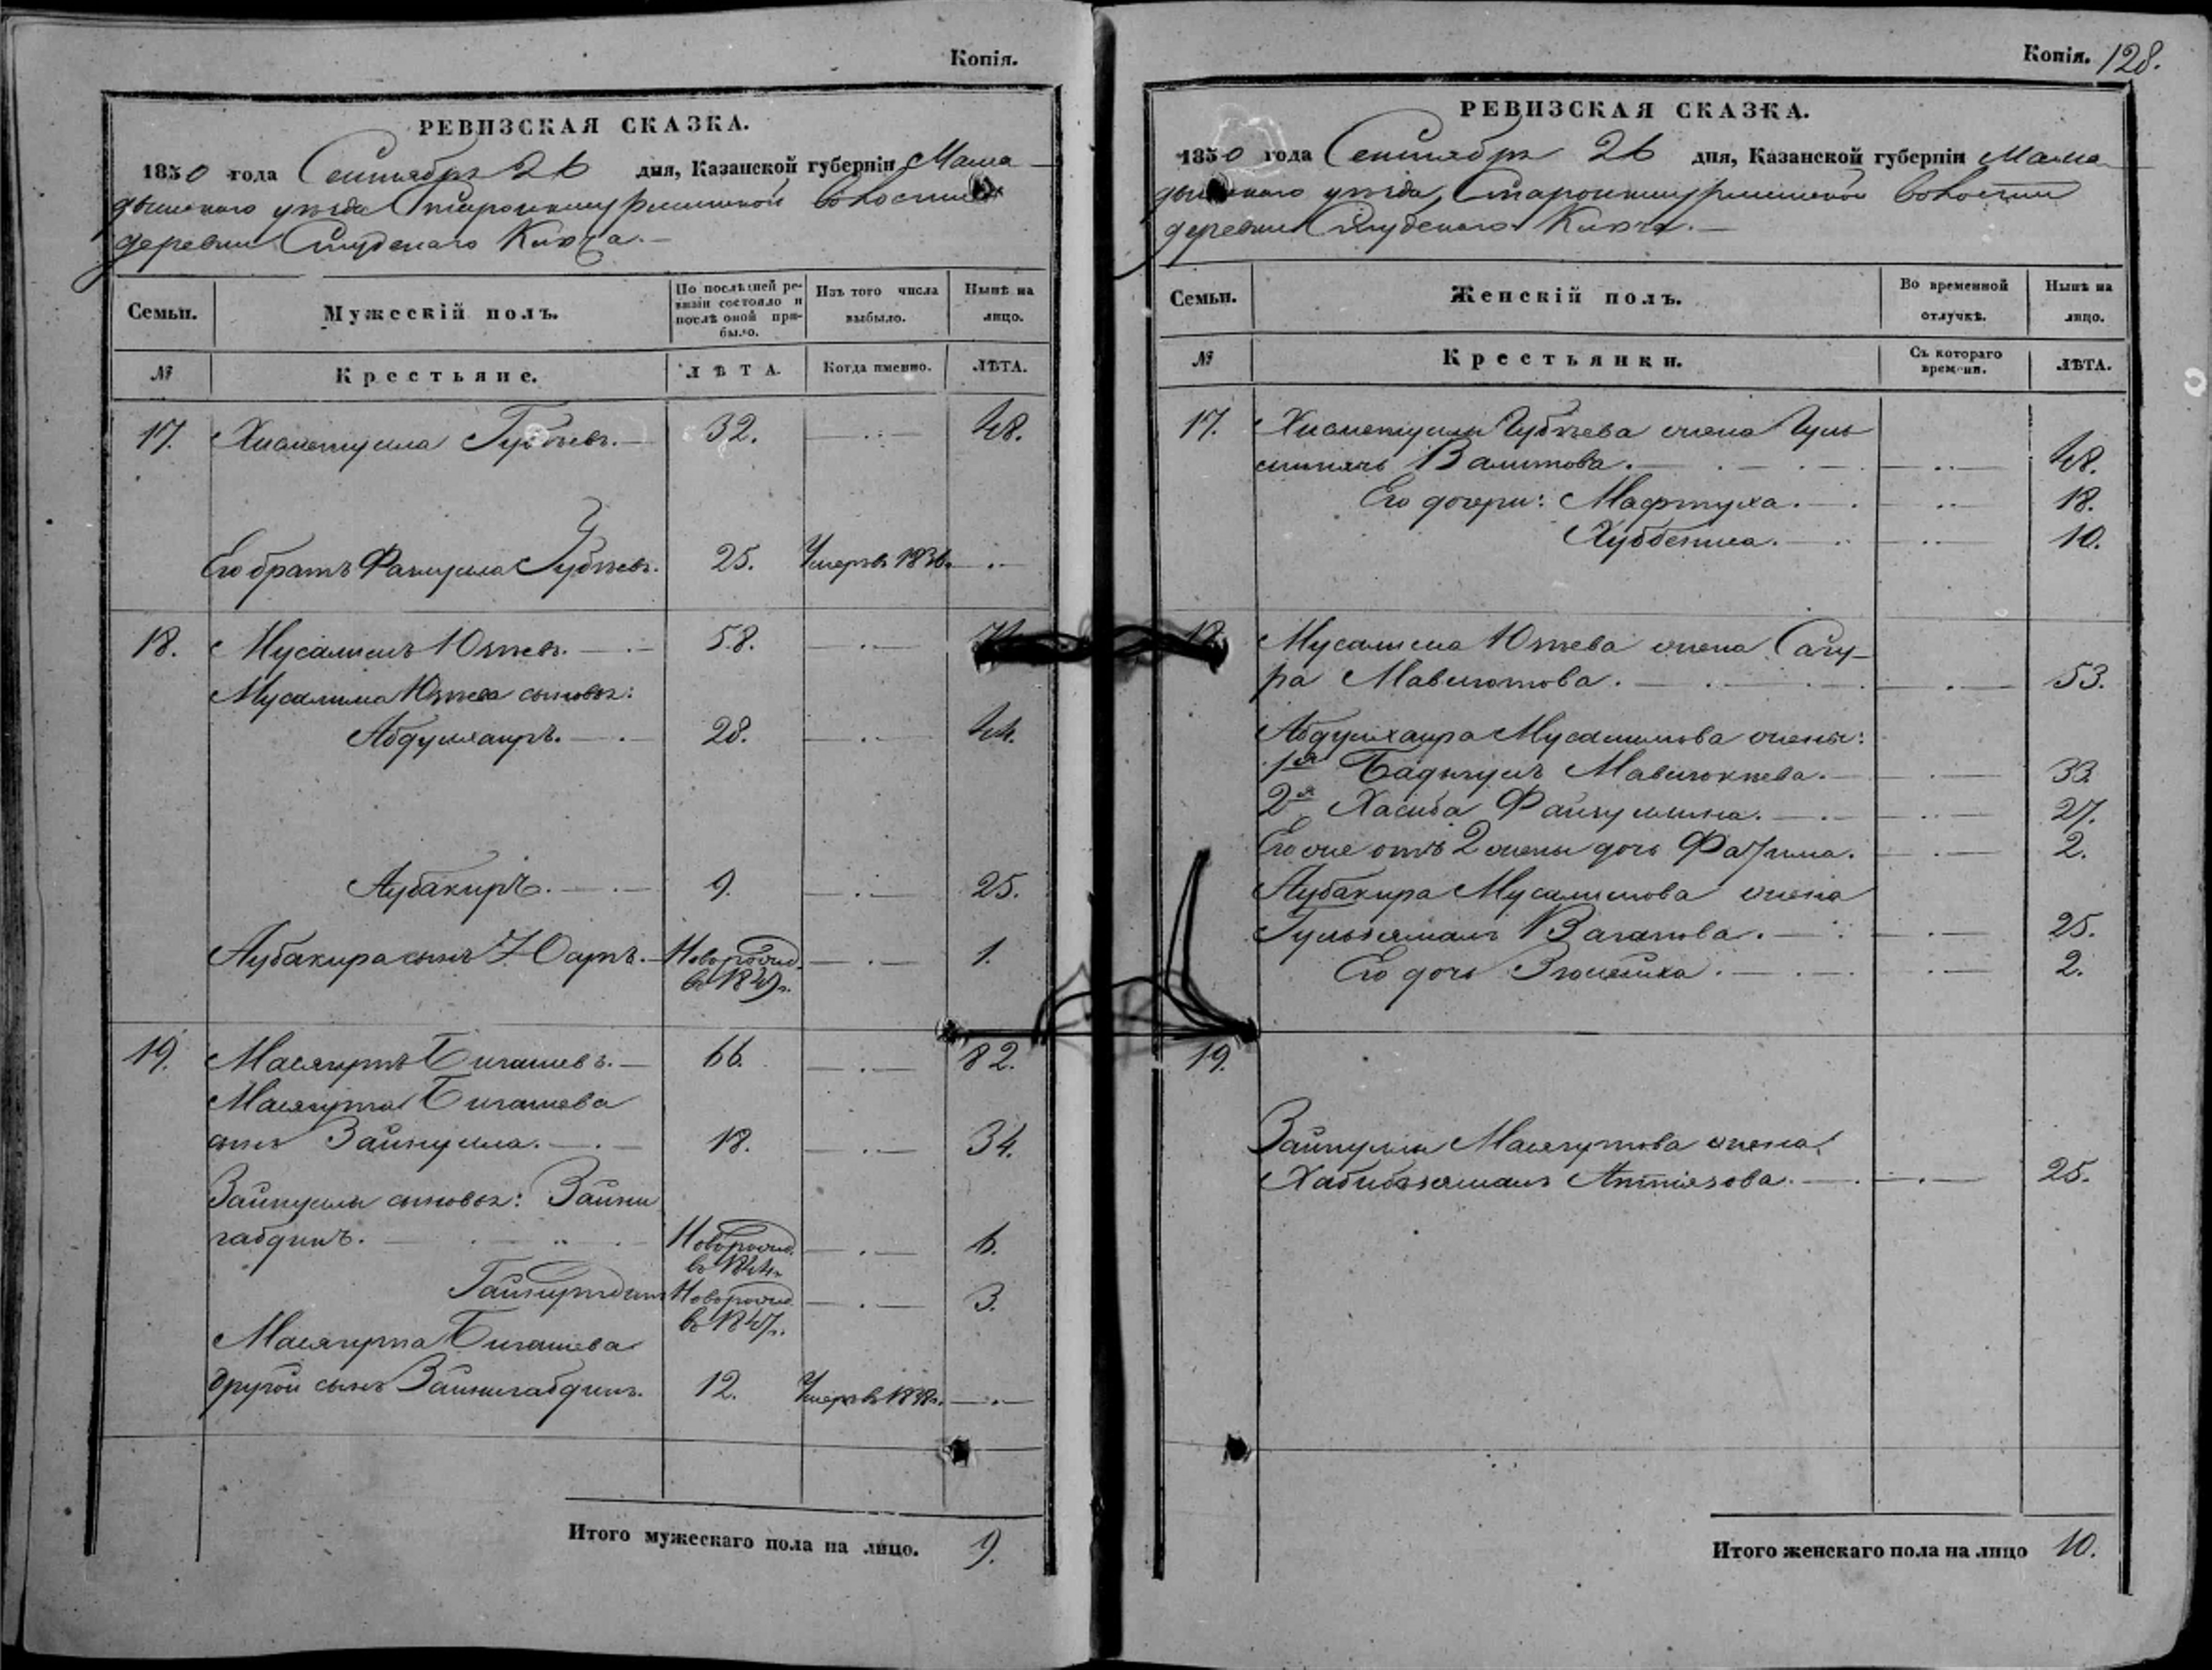 Копія.
РЕВИЗСКАЯ СКАЗКА.
1850 года Сентября 26 дня, Казанской губерніи Мама
дышскаго уѣзда волости
деревни Студенаго Ключа.
Семьи.
Мужескій полъ.
По послѣдней ре-
визіи состояло и
послѣ оной при-
было.
Изъ того числа
выбыло.
Нынѣ на
лицо.
№
Крестьяне.
ЛѢТА.
Когда именно.
ЛѢТА.
17. Хисаметулла Губѣевъ. 32. 48.
Его братъ Губѣевъ. 25. Умеръ въ 1836.
18. Мусалимъ Юзѣевъ. 58.
Мусалима Юзѣева сыновья:
Абдулхаиръ. 28. 44.
Аубакиръ. 9. 25.
Аубакира сынъ Новорожд. 1.
въ 1849г.
19. Масягутъ Бигашевъ. 66. 82.
Масягута Бигашева
сынъ Зайнулла. 18. 34.
Зайнуллы сыновья: Зайни
габдинъ. Новорожд. 6.
въ 1844г.
Новорожд. 3.
въ 1847г.
Масягута Бигашева
другой сынъ Зайнигабдинъ. 12. Умеръ въ 1838г.
Итого мужескаго пола на лицо. 9.
Копія. 128.
РЕВИЗСКАЯ СКАЗКА.
1850 года Сентября 26 дня, Казанской губерніи Мама
дышскаго уѣзда, волости
деревни Студенаго Ключа.
Семьи.
Женскій полъ.
Во временной
отлучкѣ.
Нынѣ на
лицо.
№
Крестьянки.
Съ котораго
времени.
ЛѢТА.
17. Хисаметуллы Губѣева жена Гуль
Валитова. 48.
Его дочери: Мафтуха. 18.
Хуббениса. 10.
18. Мусалима Юзѣева жена Сагу-
ра Мавлютова. 53.
Абдулхаира Мусалимова жены:
1я Бадыгулъ Мавлюкѣева. 33.
2я Хасиба Файзуллина. 27.
Его же отъ 2 жены дочь Фатима. 2.
Аубакира Мусалимова жена
Гульзямалъ Вагапова. 25.
Его дочь Зюлейха. 2.
19.
Зайнуллы Масягутова жена
Хабибзямалъ 25.
Итого женскаго пола на лицо 10.